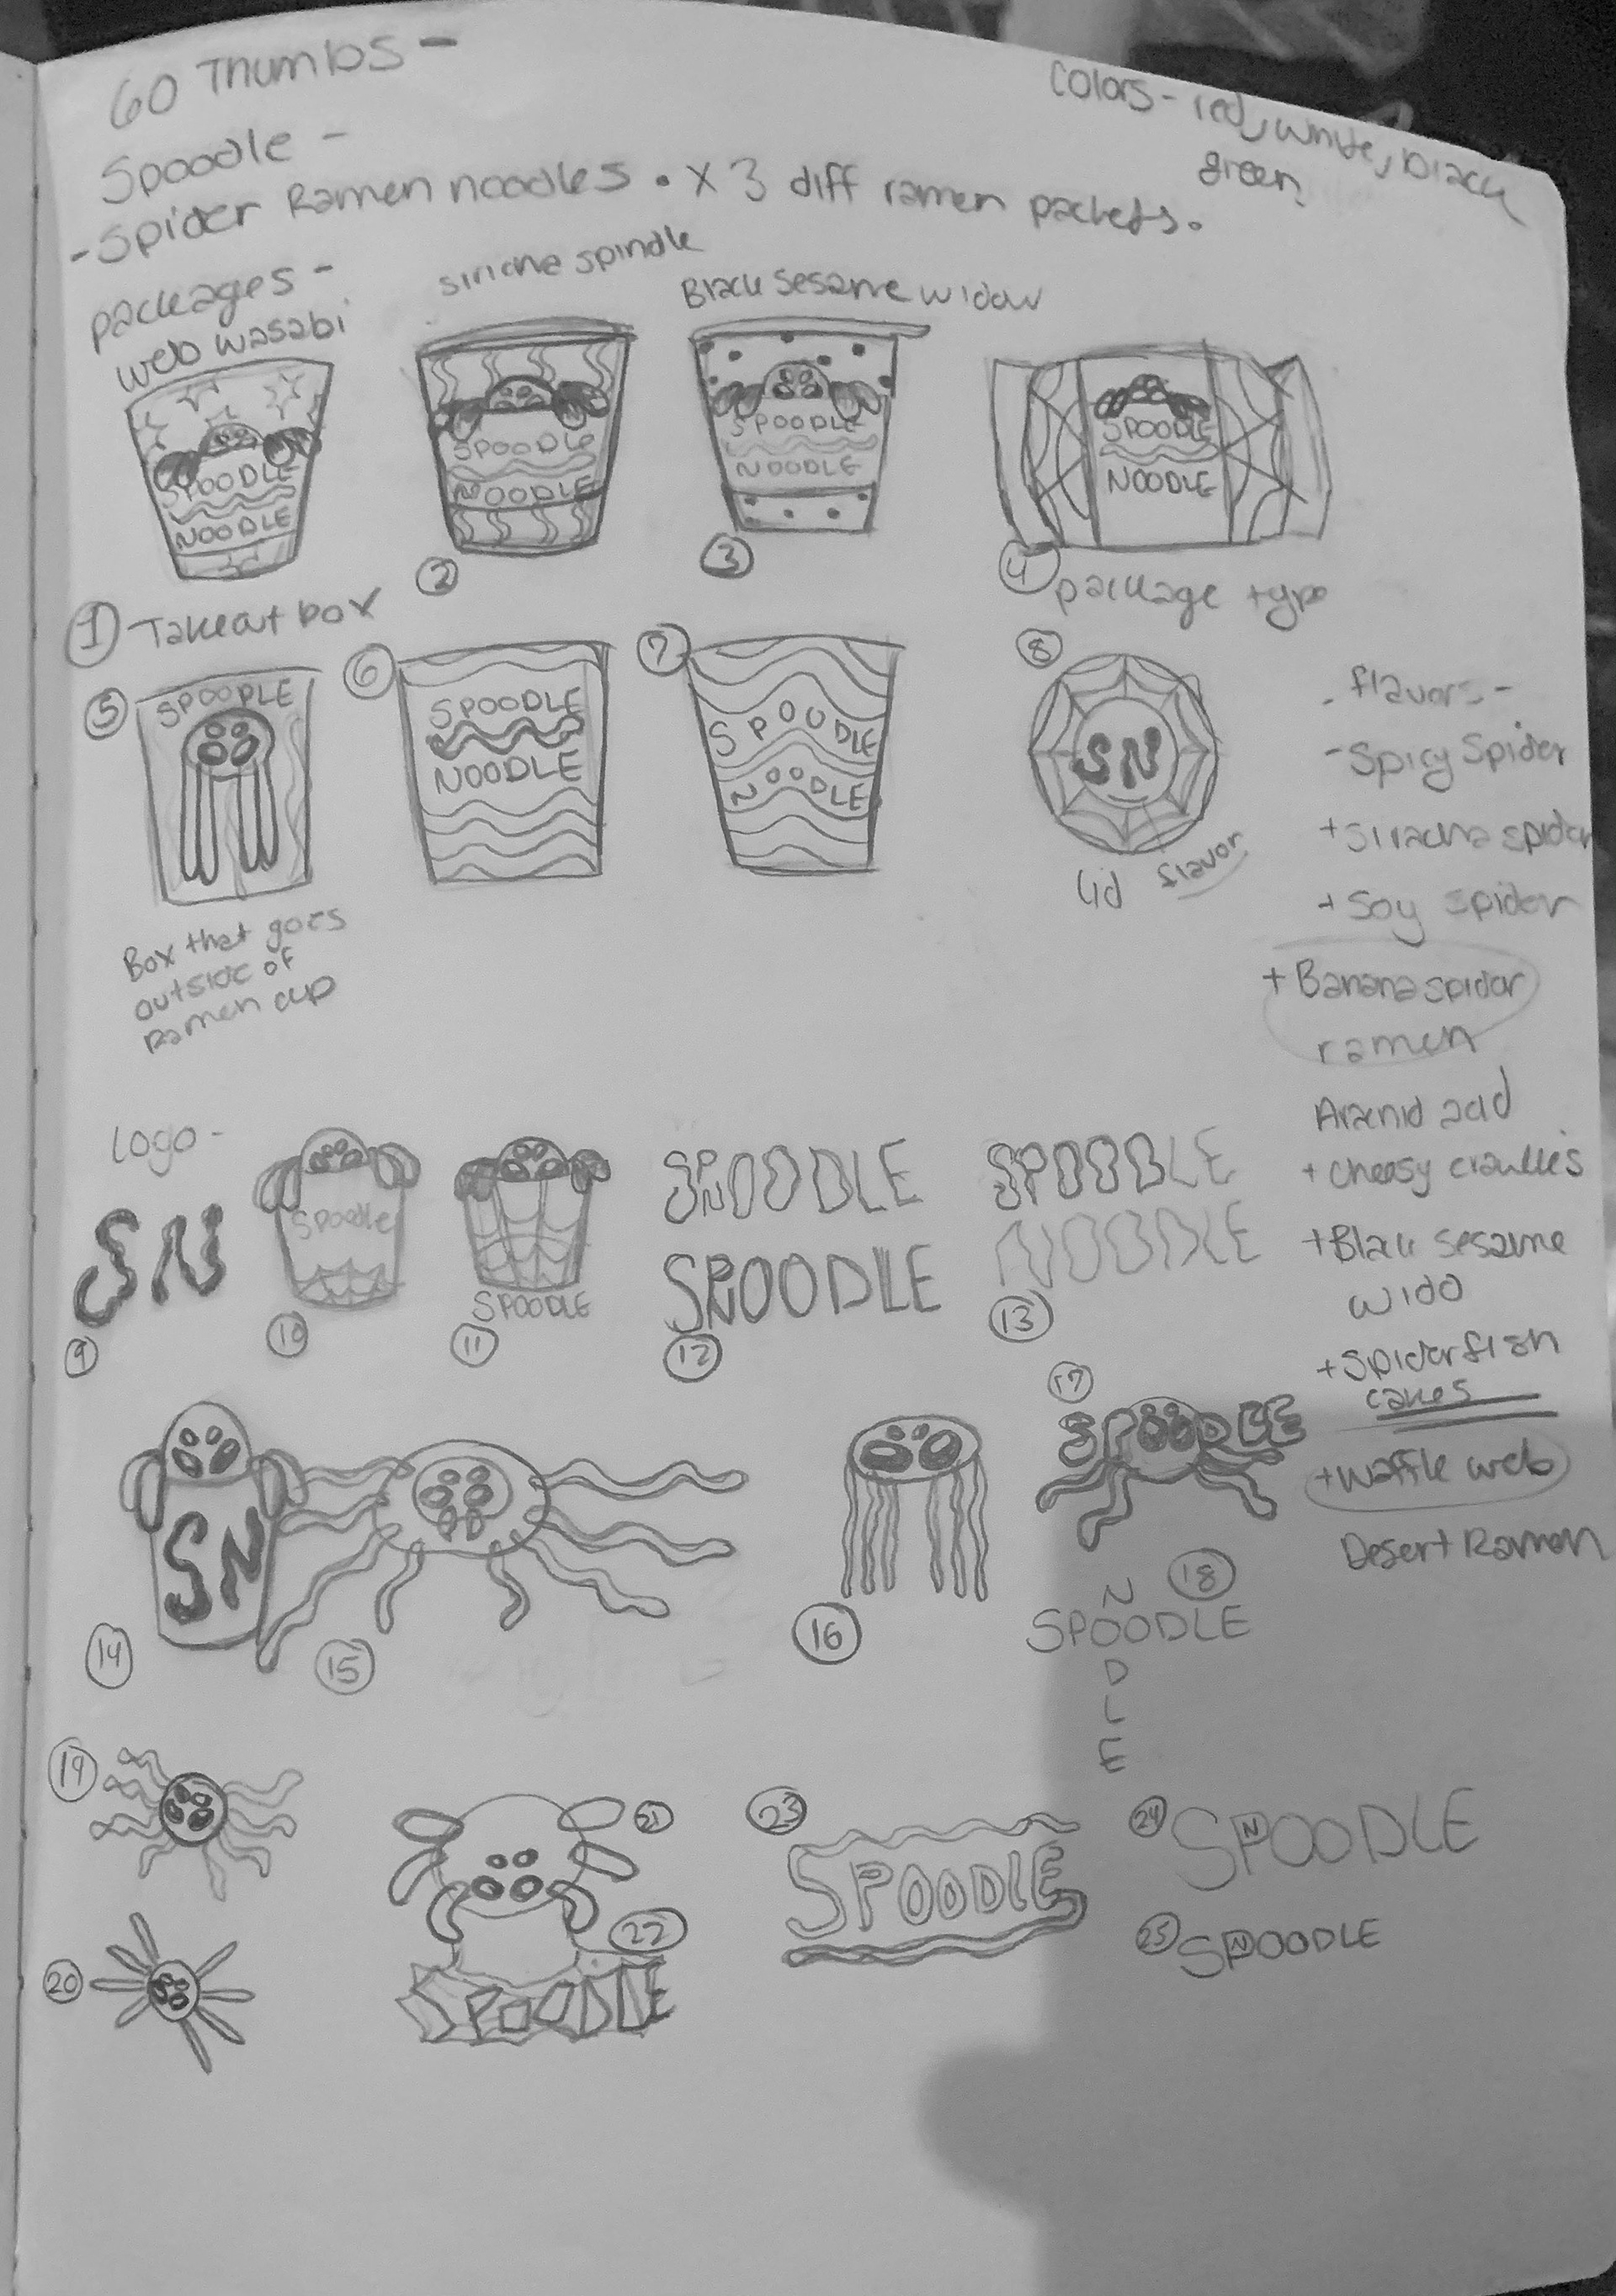 60 Thumbs -
Colors - red, white, black
green
Spoodle -
- Spider Ramen noodles . x 3 diff ramen packets.
packages -
web wasabi
siricha spindle
Black Sesame widow
SPOODLE
NOODLE
SPOODLE
NOODLE
SPOODLE
NOODLE
SPOODLE
NOODLE
1 Takeout box
2
3
4 package type
5
SPOODLE
6
SPOODLE
NOODLE
7
SPOODLE
NOODLE
8
SN
lid flavor
Box that goes
outside of
Ramen cup
flavors -
- Spicy Spider
+ Siracha spider
+ Soy spider
+ Banana spider
ramen
Aracnid acid
+ cheesy crawlies
+ Black sesame
wido
+ Spider fish
cakes
+ waffle web
Desert Ramen
Logo -
SN
9
Spoodle
10
SPOODLE
11
SPNOODLE
SPNOODLE
12
SPOODLE
NOODLE
13
SN
14
15
16
17
SPOODLE
18
N
SPOODLE
O
D
L
E
19
20
21
22
SPOODLE
23
SPOODLE
24 SPNOODLE
25 SPNOODLE